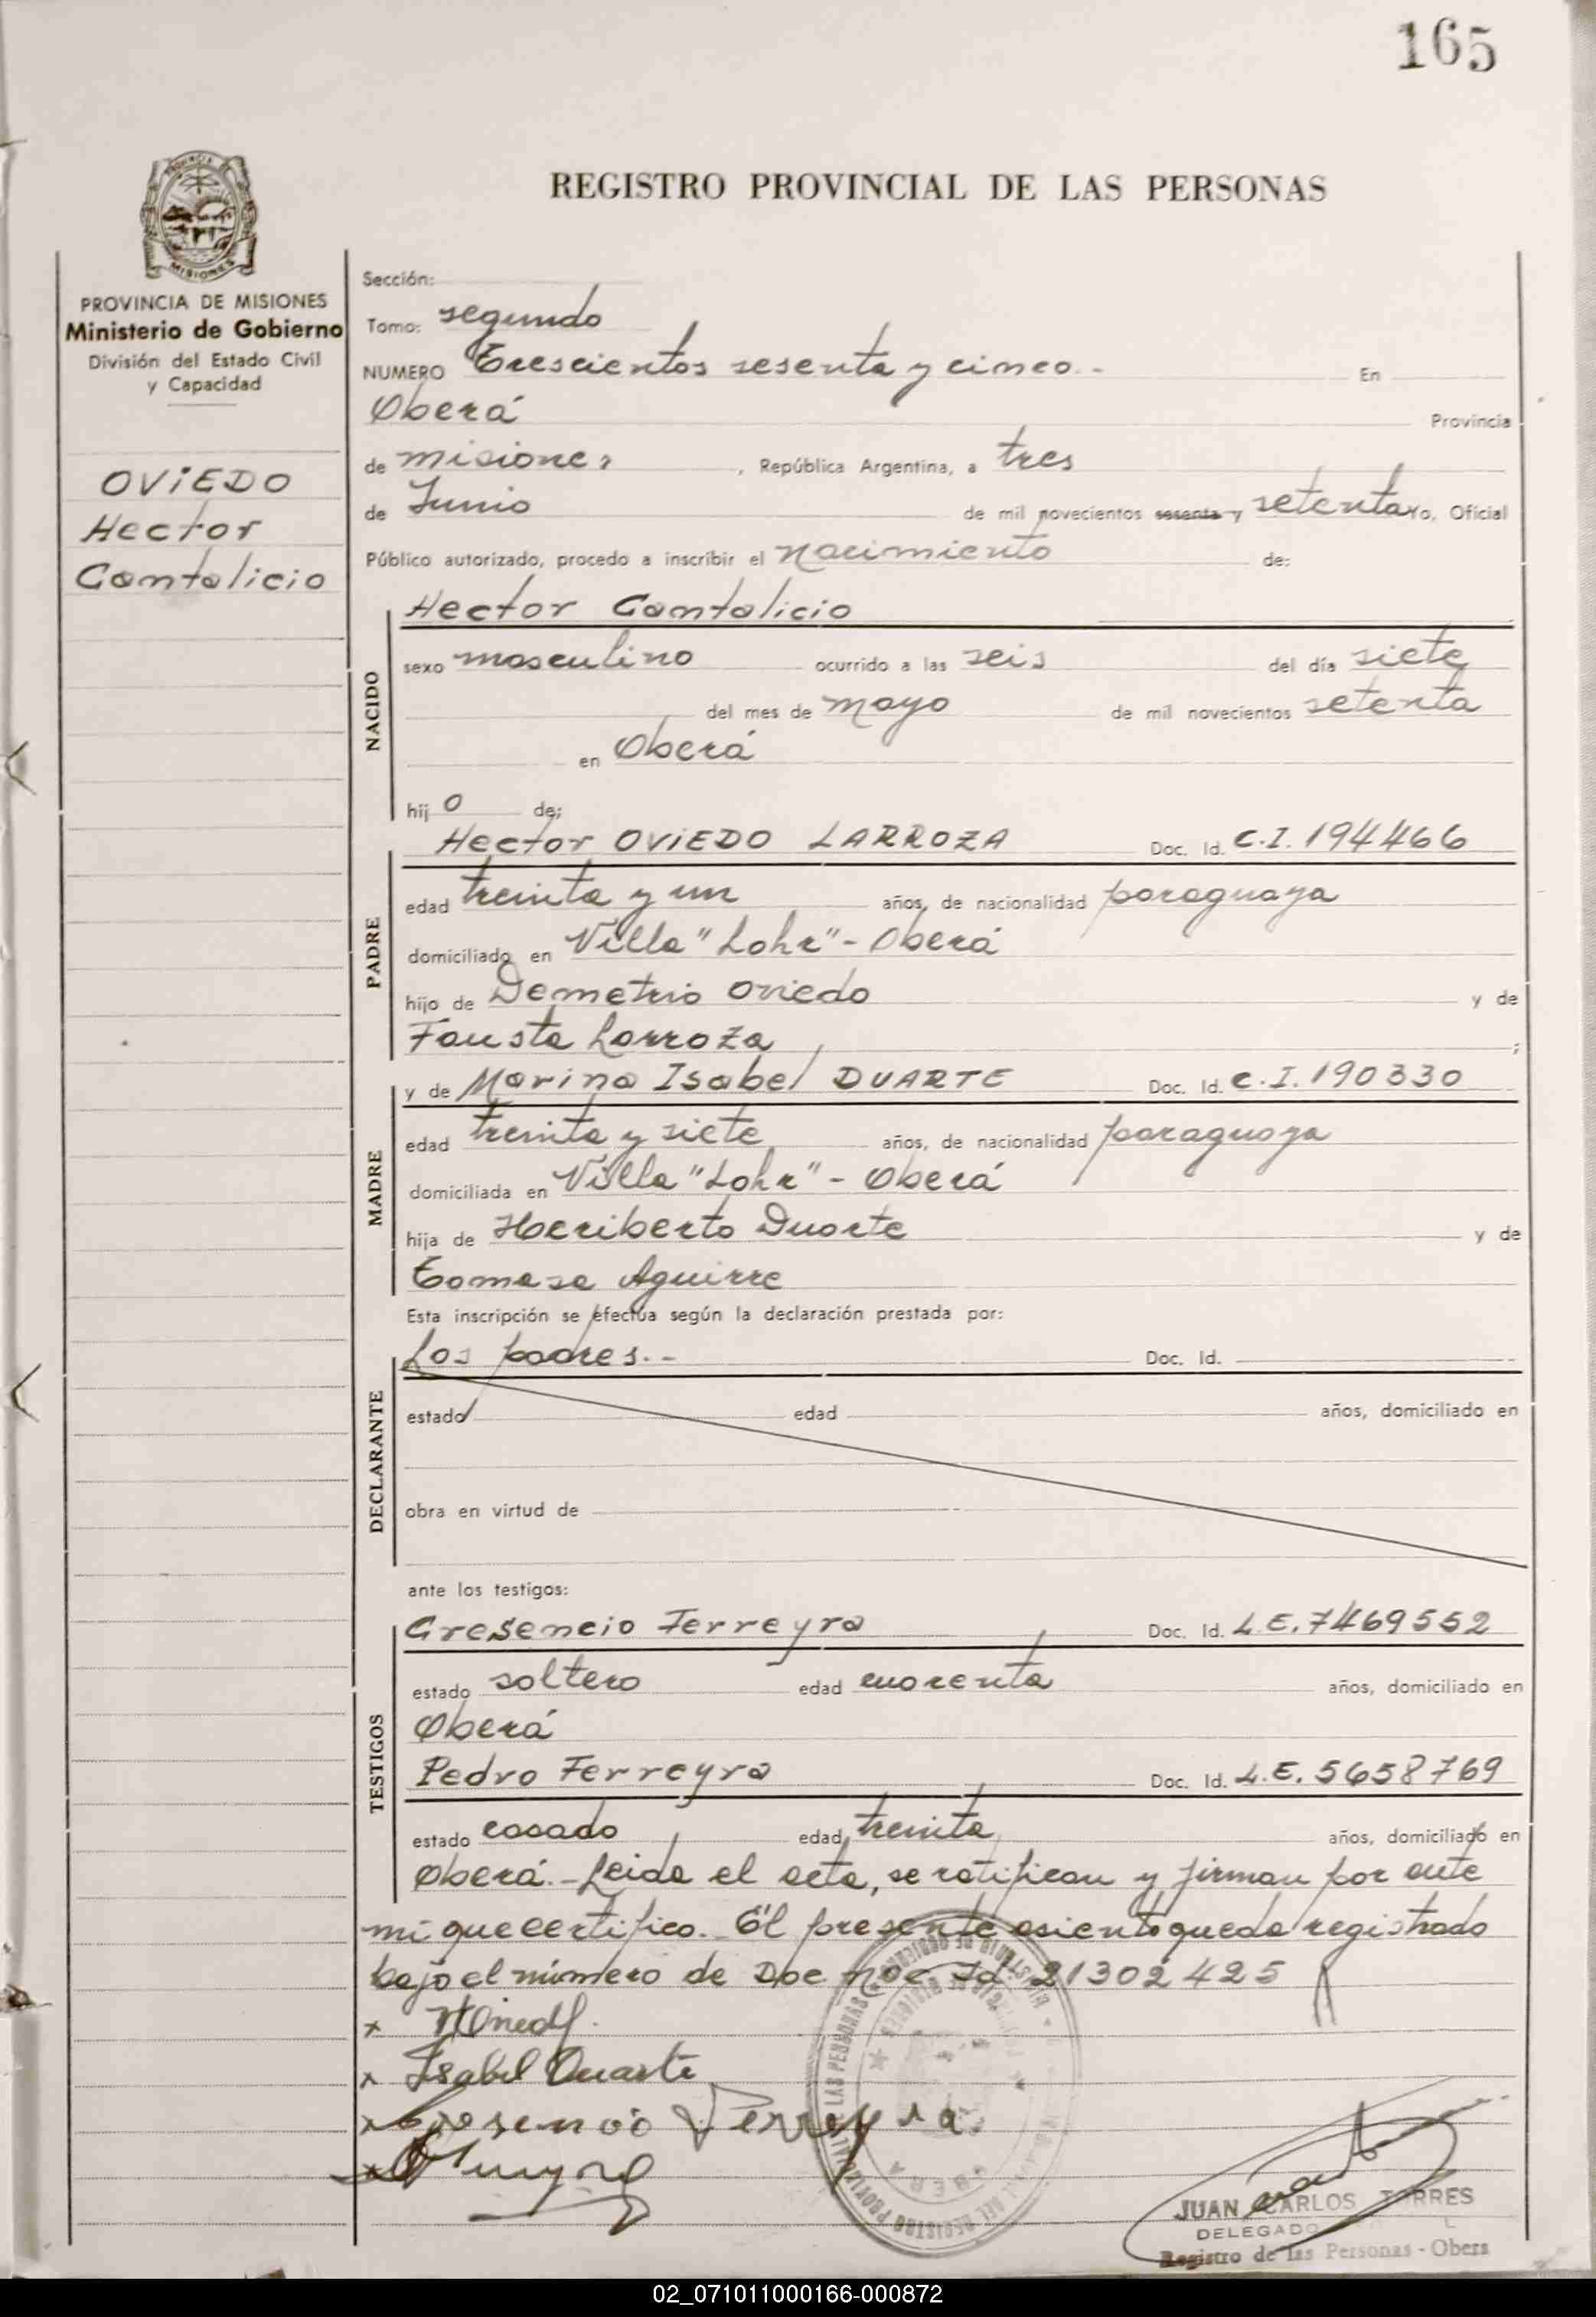 165
REGISTRO PROVINCIAL DE LAS PERSONAS
PROVINCIA DE MISIONES
Ministerio de Gobierno
División del Estado Civil
y Capacidad
OVIEDO
Hector
Cantalicio
Sección:
Tomo: segundo
NUMERO Trescientos sesenta y cinco.- En
Oberá Provincia
de misiones, República Argentina, a tres
de Junio de mil novecientos sesenta y setenta Yo, Oficial
Público autorizado, procedo a inscribir el nacimiento de:
NACIDO
Hector Cantalicio
sexo masculino ocurrido a las seis del día siete
del mes de mayo de mil novecientos setenta
en Oberá
hij o de;
PADRE
Hector OVIEDO LARROZA Doc. Id. C.I. 194466
edad treinta y un años, de nacionalidad paraguaya
domiciliado en Villa "Lohr" - Oberá
hijo de Demetrio Oviedo y de
Fausta Larroza ;
MADRE
y de Marina Isabel DUARTE Doc. Id. C.I. 190330
edad treinta y siete años, de nacionalidad paraguaya
domiciliada en Villa "Lohr" - Oberá
hija de Heriberto Duarte y de
Tomasa Aguirre
Esta inscripción se efectúa según la declaración prestada por:
DECLARANTE
Los padres.- Doc. Id.
estado edad años, domiciliado en
obra en virtud de
ante los testigos:
TESTIGOS
Cresencio Ferreyra Doc. Id. L.E. 7469552
estado soltero edad cuarenta años, domiciliado en
Oberá
Pedro Ferreyra Doc. Id. L.E. 5658769
estado casado edad treinta años, domiciliado en
Oberá.- Leida el acta, se ratifican y firman por ante
mí que certifico. El presente asiento queda registrado
bajo el número de Doc Nac Id 21302425
x HOviedo.
x Isabel Duarte
x Cresencio Ferreyra
x
OBERA
JUAN CARLOS TORRES
DELEGADO
Registro de las Personas - Obera
02_071011000166-000872